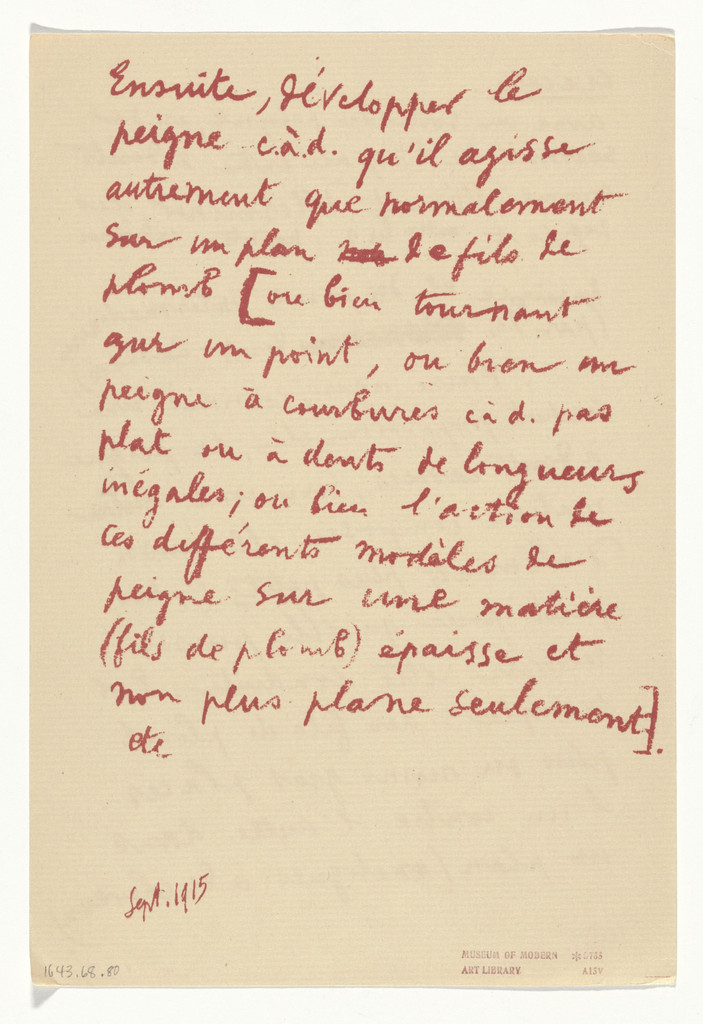 Ensuite, développer le
peigne c.à.d. qu'il agisse
autrement que normalement
sur un plan de fils de
plomb [ou bien tournant
sur un point, ou bien un
peigne à courbures c à d. pas
plat ou à dents de longueurs
inégales; ou bien l'action de
ces différents modèles de
peigne sur une matière
(fils de plomb) épaisse et
non plus plane seulement].
etc
Sept. 1915
1643.68.80
MUSEUM OF MODERN
ART LIBRARY
A15V